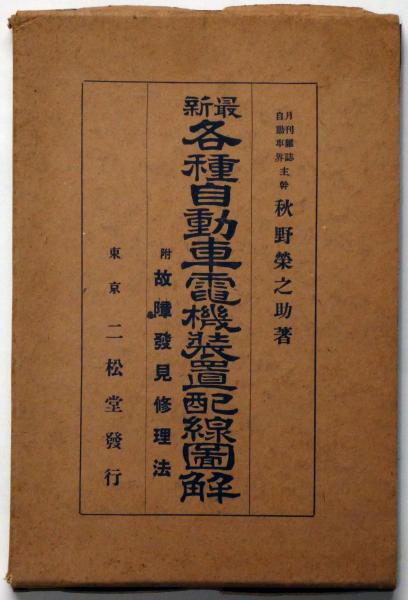 月刊雜誌
自動車界
主幹
秋野榮之助著
最新
各種自動車電機装置配線圖解
附
故障發見修理法
東京
二松堂發行